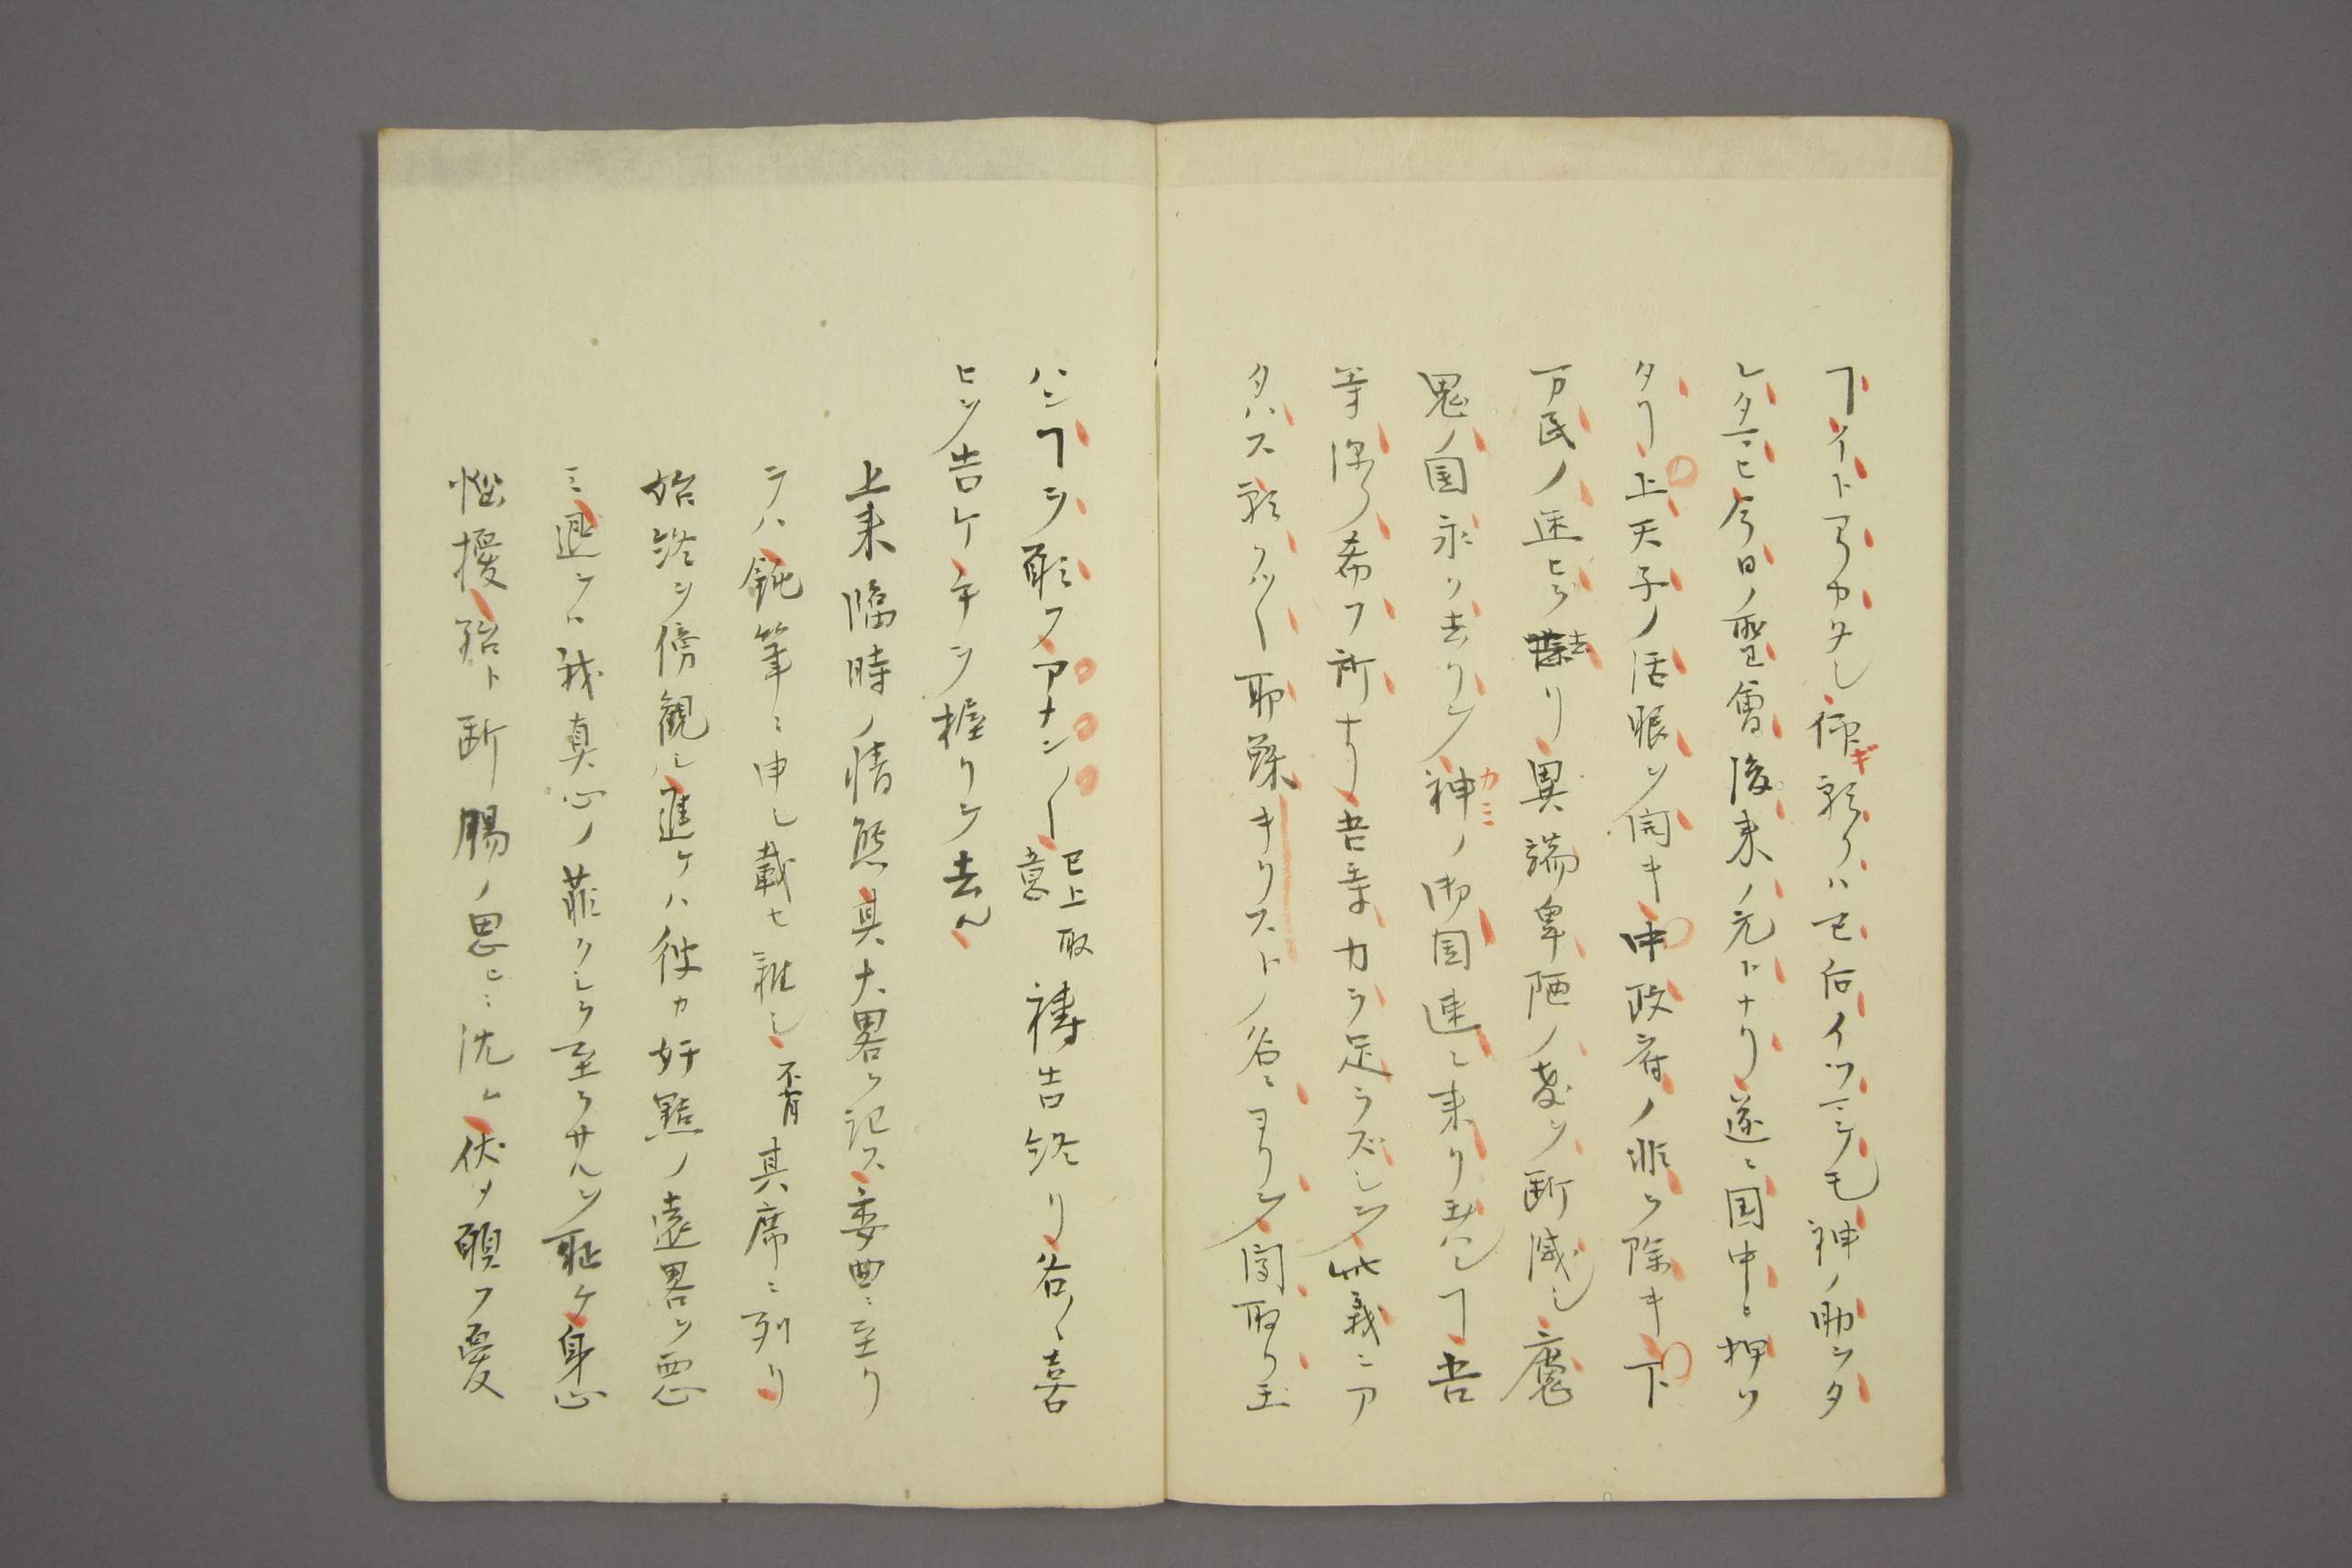 ヿイトアリカタシ仰ギ願クハ已后イツニテモ神ノ助ヲタ
レタマヒ今日ノ聖會後来ノ元トナリ遂ニ国中ニ押リ
タリ上天子ノ活眼ヲ開キ中政府ノ非ヲ除キ下
万民ノ迷ヒヲ去リ異端卑陋ノ教ヲ断滅シ魔
鬼ノ国永ク去リテ神ノ御国速ニ来リ玉ハンヿ吾
等深ク希フ所ナリ吾輩カラ足ラズシテ此義ニア
タハス願クハ〳〵耶蘇キリストノ名ニヨリテ聞取リ玉
ハンヿヲ願フアナン〳〵已上取意祷告終リ各〻喜
ヒヲ告ケ手ヲ握リテ去ル
上来臨時ノ情態具大畧ヲ記ス委曲ニ至リ
テハ鈍筆ニ申シ載セ難シ不肖其席ニ列リ
始終ヲ傍観シ進ケハ彼カ奸黠ノ遠畧ヲ悪
ミ退テハ我真心ノ菲クシテ至ラサルヲ耻ケ身心
悩擾殆ト断腸ノ思ヒニ沈ム伏〆願フ憂